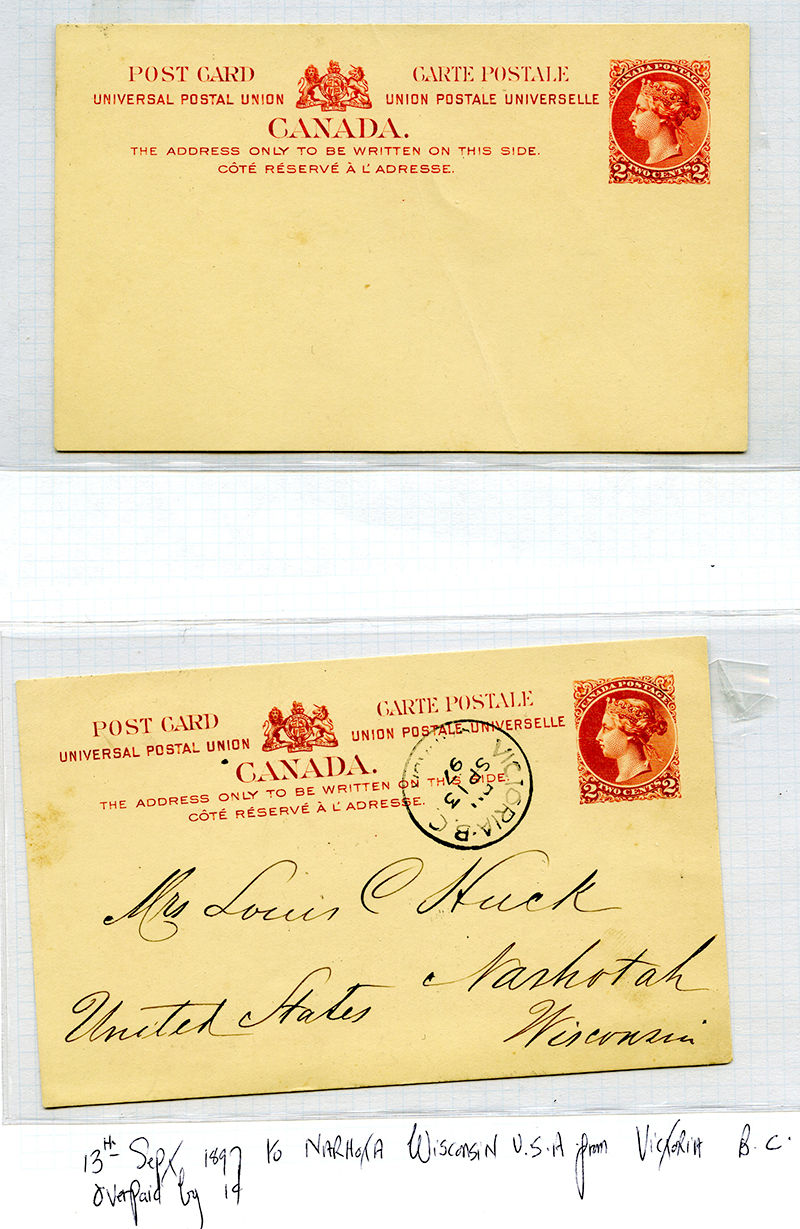 POST CARD CARTE POSTALE
UNIVERSAL POSTAL UNION UNION POSTALE UNIVERSELLE
CANADA.
THE ADDRESS ONLY TO BE WRITTEN ON THIS SIDE.
CÔTÉ RÉSERVÉ À L'ADRESSE.
CANADA POSTAGE
2 TWO CENTS 2
POST CARD CARTE POSTALE
UNIVERSAL POSTAL UNION UNION POSTALE UNIVERSELLE
CANADA.
THE ADDRESS ONLY TO BE WRITTEN ON THIS SIDE.
CÔTÉ RÉSERVÉ À L'ADRESSE.
CANADA POSTAGE
2 TWO CENTS 2
VICTORIA·B.C
SP 13
97
Mrs Louis C Huck
Nashotah
United States
Wisconsin
13th Sept 1897 to NARHOTA WISCONSIN U.S.A from VICTORIA B.C.
overpaid by 1¢